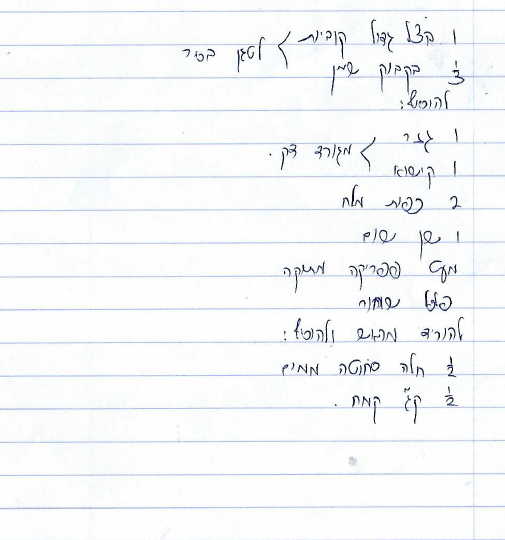 1 בצל גדול קוביות > לטגן בסיר
½ בקבוק שמן
להוסיף:
1 גזר > מגורד דק.
1 קישוא
2 כפות מלח
1 שן שום
מעט פפריקה מתוקה
פלפל שחור
להוריד מהאש ולהוסיף:
½ חלה סחוטה ממים
½ ק"ג קמח.